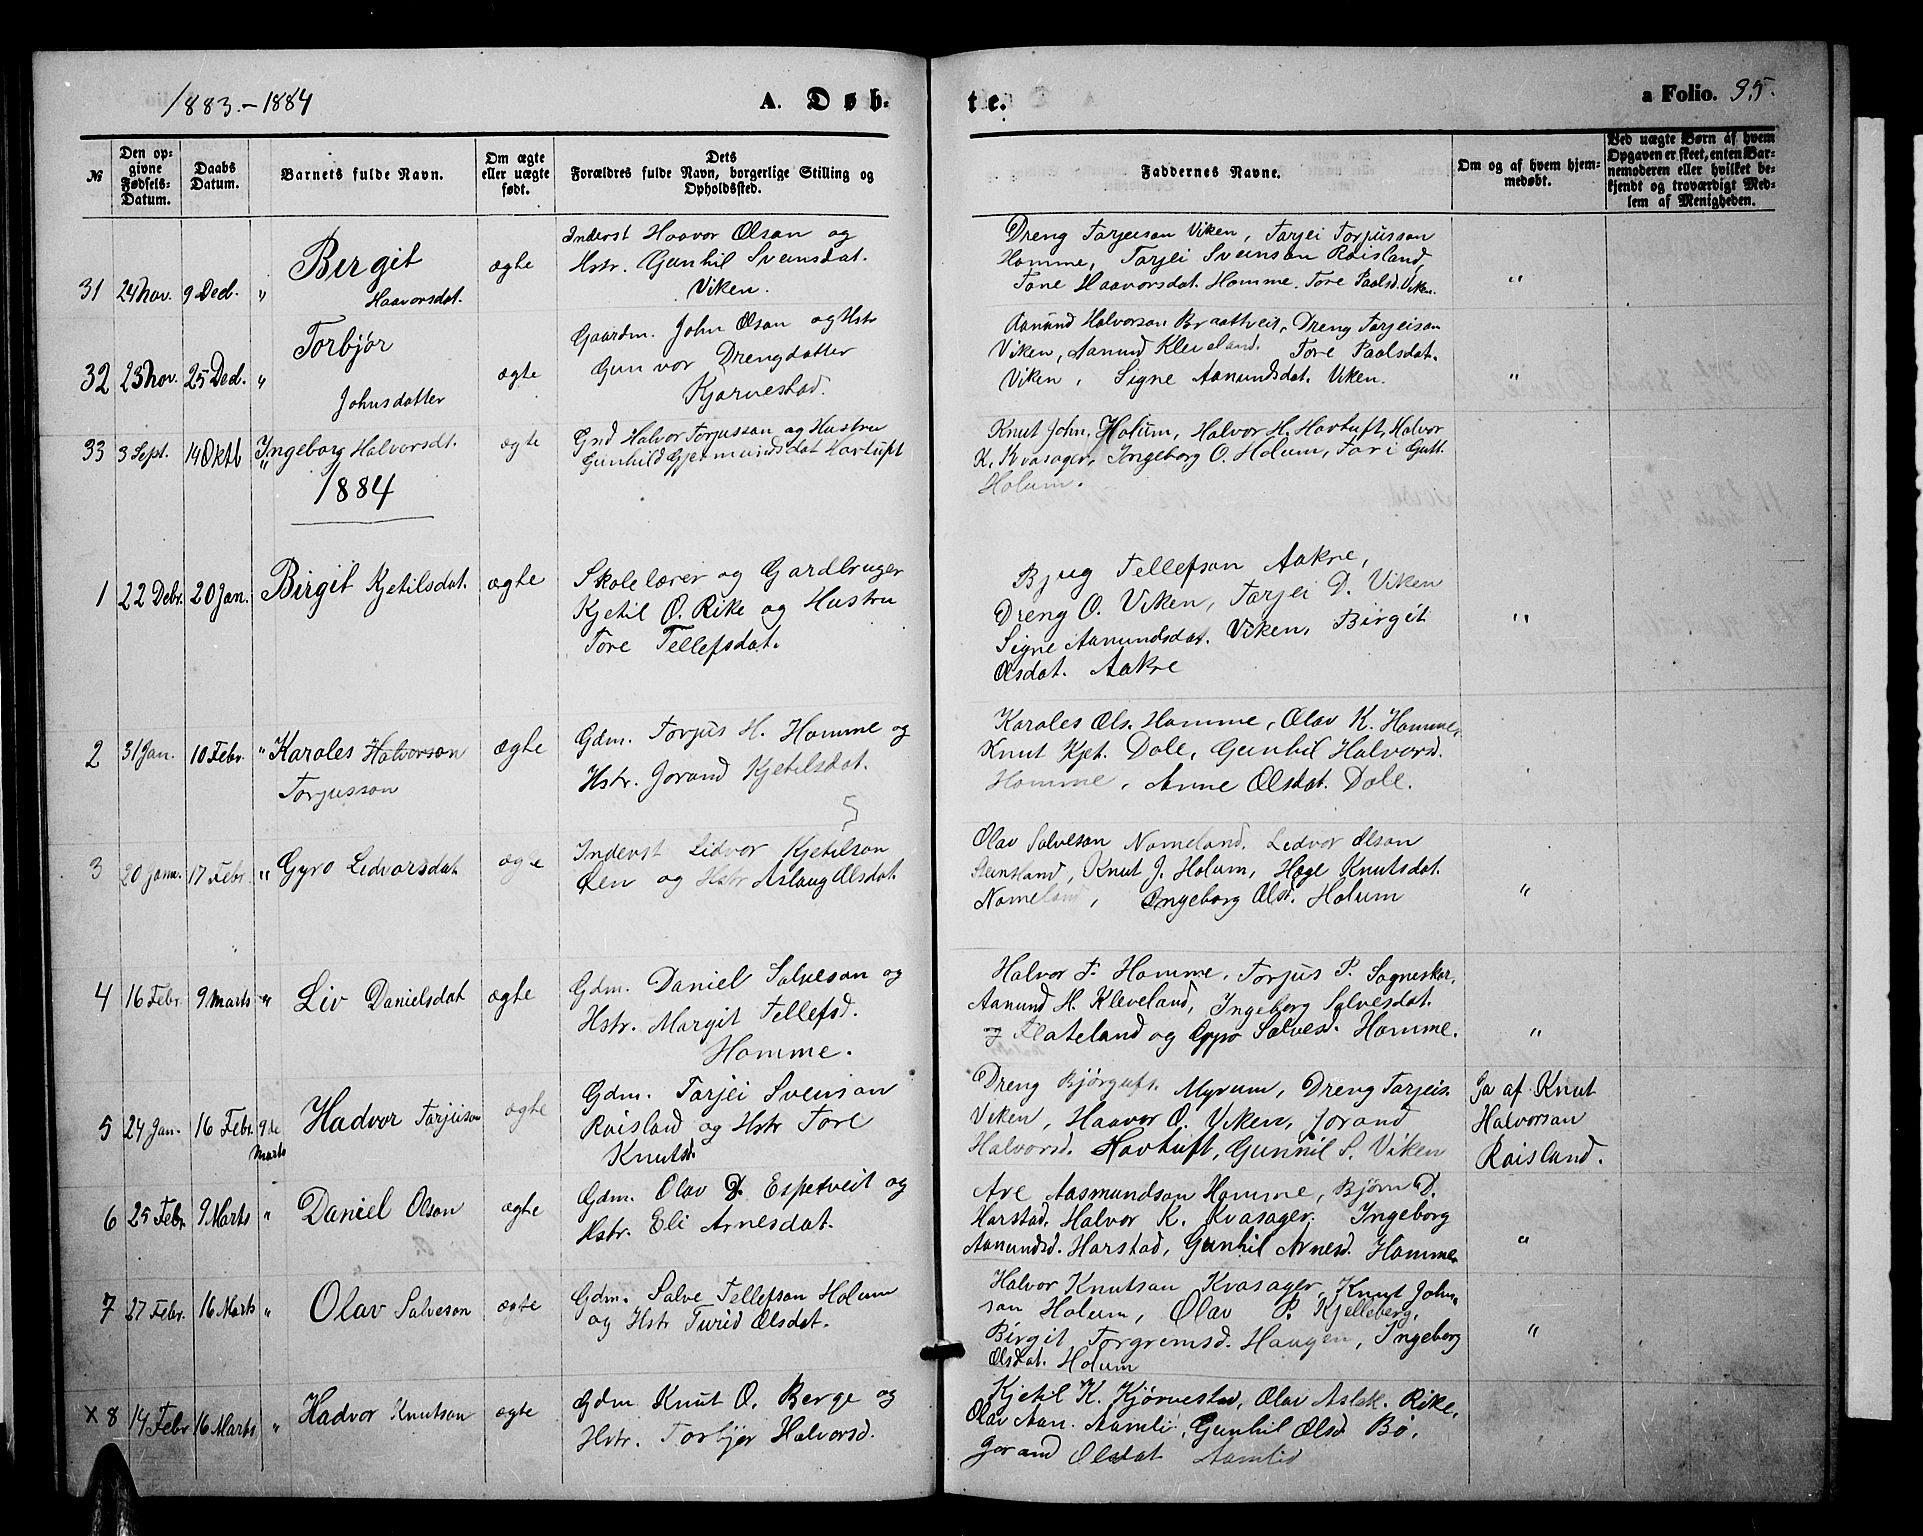 1883.-1884
A. Døb-
te.
a Folio. 95.
№
Den op-
givne
Fødsels-
Datum.
Daabs
Datum.
Barnets fulde Navn.
Om ægte
eller uægte
født.
Dets
Forældres fulde Navn, borgerlige Stilling og
Opholdssted.
Faddernes Navne.
Om og af hvem hjem-
medøbt.
Ved uægte Børn af hvem
Opgaven er skeet, enten Bar-
nemoderen eller hvilket be-
kjendt og troværdigt Med-
lem af Menigheden.
31 24 Nov. 9 Dec. " Birgit
Haavorsdat.
ægte
Inderst Haavor Olson og
Hstr. Gunhil Svensdat.
Viken.
Dreng Tarjeison Viken, Tarjei Torjusson
Homme, Tarjei Svenson Raisland,
Tone Haavorsdat. Homme. Tore Paalsd. Viken.
"
32 23 Nov. 25 Dec. " Torbjør
Johnsdatter
ægte
Gaardm. John Olson og Hstr
Gunvor Drengdatter
Kjørvestad.
Aanund Halvorson Braathveit, Dreng Tarjeison
Viken, Aanund Kleveland. Tore Paalsdat.
Viken, Signe Aanundsdat. Viken.
"
33 3 Sept. 14 Oktb " Ingeborg Halvorsdt.
ægte
Grd Halvor Torjusson og Hustru
Gunhild Gjermundsdat Hovtuft
Knut John. Holum, Halvor H. Hovtuft, Halvor
K. Kvasager, Ingeborg O. Holum, Tori Gutt.
Holum.
1884
1 22 Debr. 20 Jan. Birgit Kjetilsdat.
ægte
Skolelærer og Gardbruger
Kjetil O. Rike og Hustru
Tore Tellefsdat.
Bjug Tellefson Aakre,
Dreng O. Viken, Tarjei D. Viken
Signe Aanundsdat. Viken, Birgit
Olsdat. Aakre
"
2 31 Jan. 10 Febr. " Karoles Halvorson
Torjusson
ægte
Gdm. Torjus H. Homme og
Hstr. Jorand Kjetilsdat.
Karoles Ols. Homme, Olav K. Homme,
Knut Kjet. Dole, Gunhil Halvorsd.
Homme, Anne Olsdat. Dole.
3 20 Janu. 17 Febr. " Gyro Lidvorsdat
ægte
Inderst Lidvor Kjetilson
Øen og Hstr Aslaug Olsdat.
Olav Salveson Nomeland. Ledvor Olson
Steinsland, Knut J. Holum, Hæge Knutsdat.
Nomeland, Ingeborg Olsd. Holum
"
4 16 Febr. 9 Marts " Liv Danielsdat
ægte
Gdm. Daniel Salveson og
Hstr. Margit Tellefsd.
Homme.
Halvor T. Homme, Torjus P. Sogneskar,
Aanund H. Kleveland, Ingeborg Salvesdat.
Flateland og Gyro Salvesd. Homme.
"
5 24 Jan. 16 Febr. 9de
Marts
Hadvor Tarjeison
ægte
Gdm. Tarjei Svenson
Raisland og Hstr Tore
Knutsd.
Dreng Bjørgufs. Myrum, Dreng Tarjeis.
Viken, Haavor O. Viken, Jorand
Halvorsd. Hovtuft, Gunhil S. Viken
Ja af Knut
Halvorson
Raisland.
6 25 Febr. 9 Marts " Daniel Olson
ægte
Gdm. Olav D. Espetveit og
Hstr. Eli Arnesdat.
Are Aasmundson Homme, Bjørn D.
Harstad, Halvor K. Kvasager. Ingeborg
Aanundsd. Harstad, Gunhil Arnesd. Homme
"
7 27 Febr. 16 Marts " Olav Salveson
ægte
Gdm. Salve Tellefson Holum
og Hstr Turid Olsdat.
Halvor Knutson Kvasager, Knut John-
son Holum, Olav P. Kjelleberg,
Birgit Torgrimsd. Haugen, Ingeborg
Olsdat. Holum
"
x 8 14 Febr 16 Marts " Hadvor Knutson
ægte
Gdm Knut O. Berge og
Hstr. Torbjør Halvorsd.
Kjetil K. Kjørvestad, Olav Aslak. Rike,
Olav Aan. Aamli, Gunhil Olsd Bø,
Jorand Olsdat Aamlid